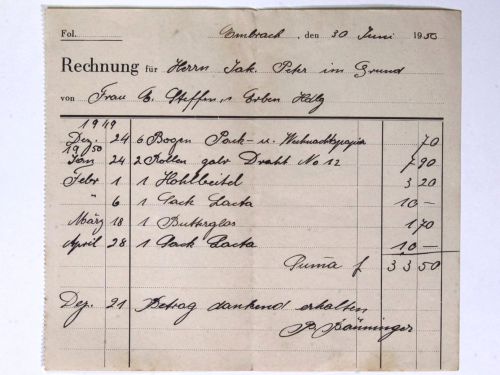 Fol. Embrach, den 30 Juni 1950
Rechnung für Herrn Jak. Peter im Grund
von Frau E. Steffen, Erben Hdlg
1949
Dez. 24 6 Bogen Pack- u. Weihnachtspapier 70
1950
Jan 24 2 Rollen galv Draht No 12 7 90
Febr 1 1 Hohlbeitel 3 20
" 6 1 Pack Lacta 10 —
März 18 1 Butterglas 1 70
April 28 1 Pack Lacta 10 —
Suma f 33 50
Dez. 21 Betrag dankend erhalten
B. Bänninger